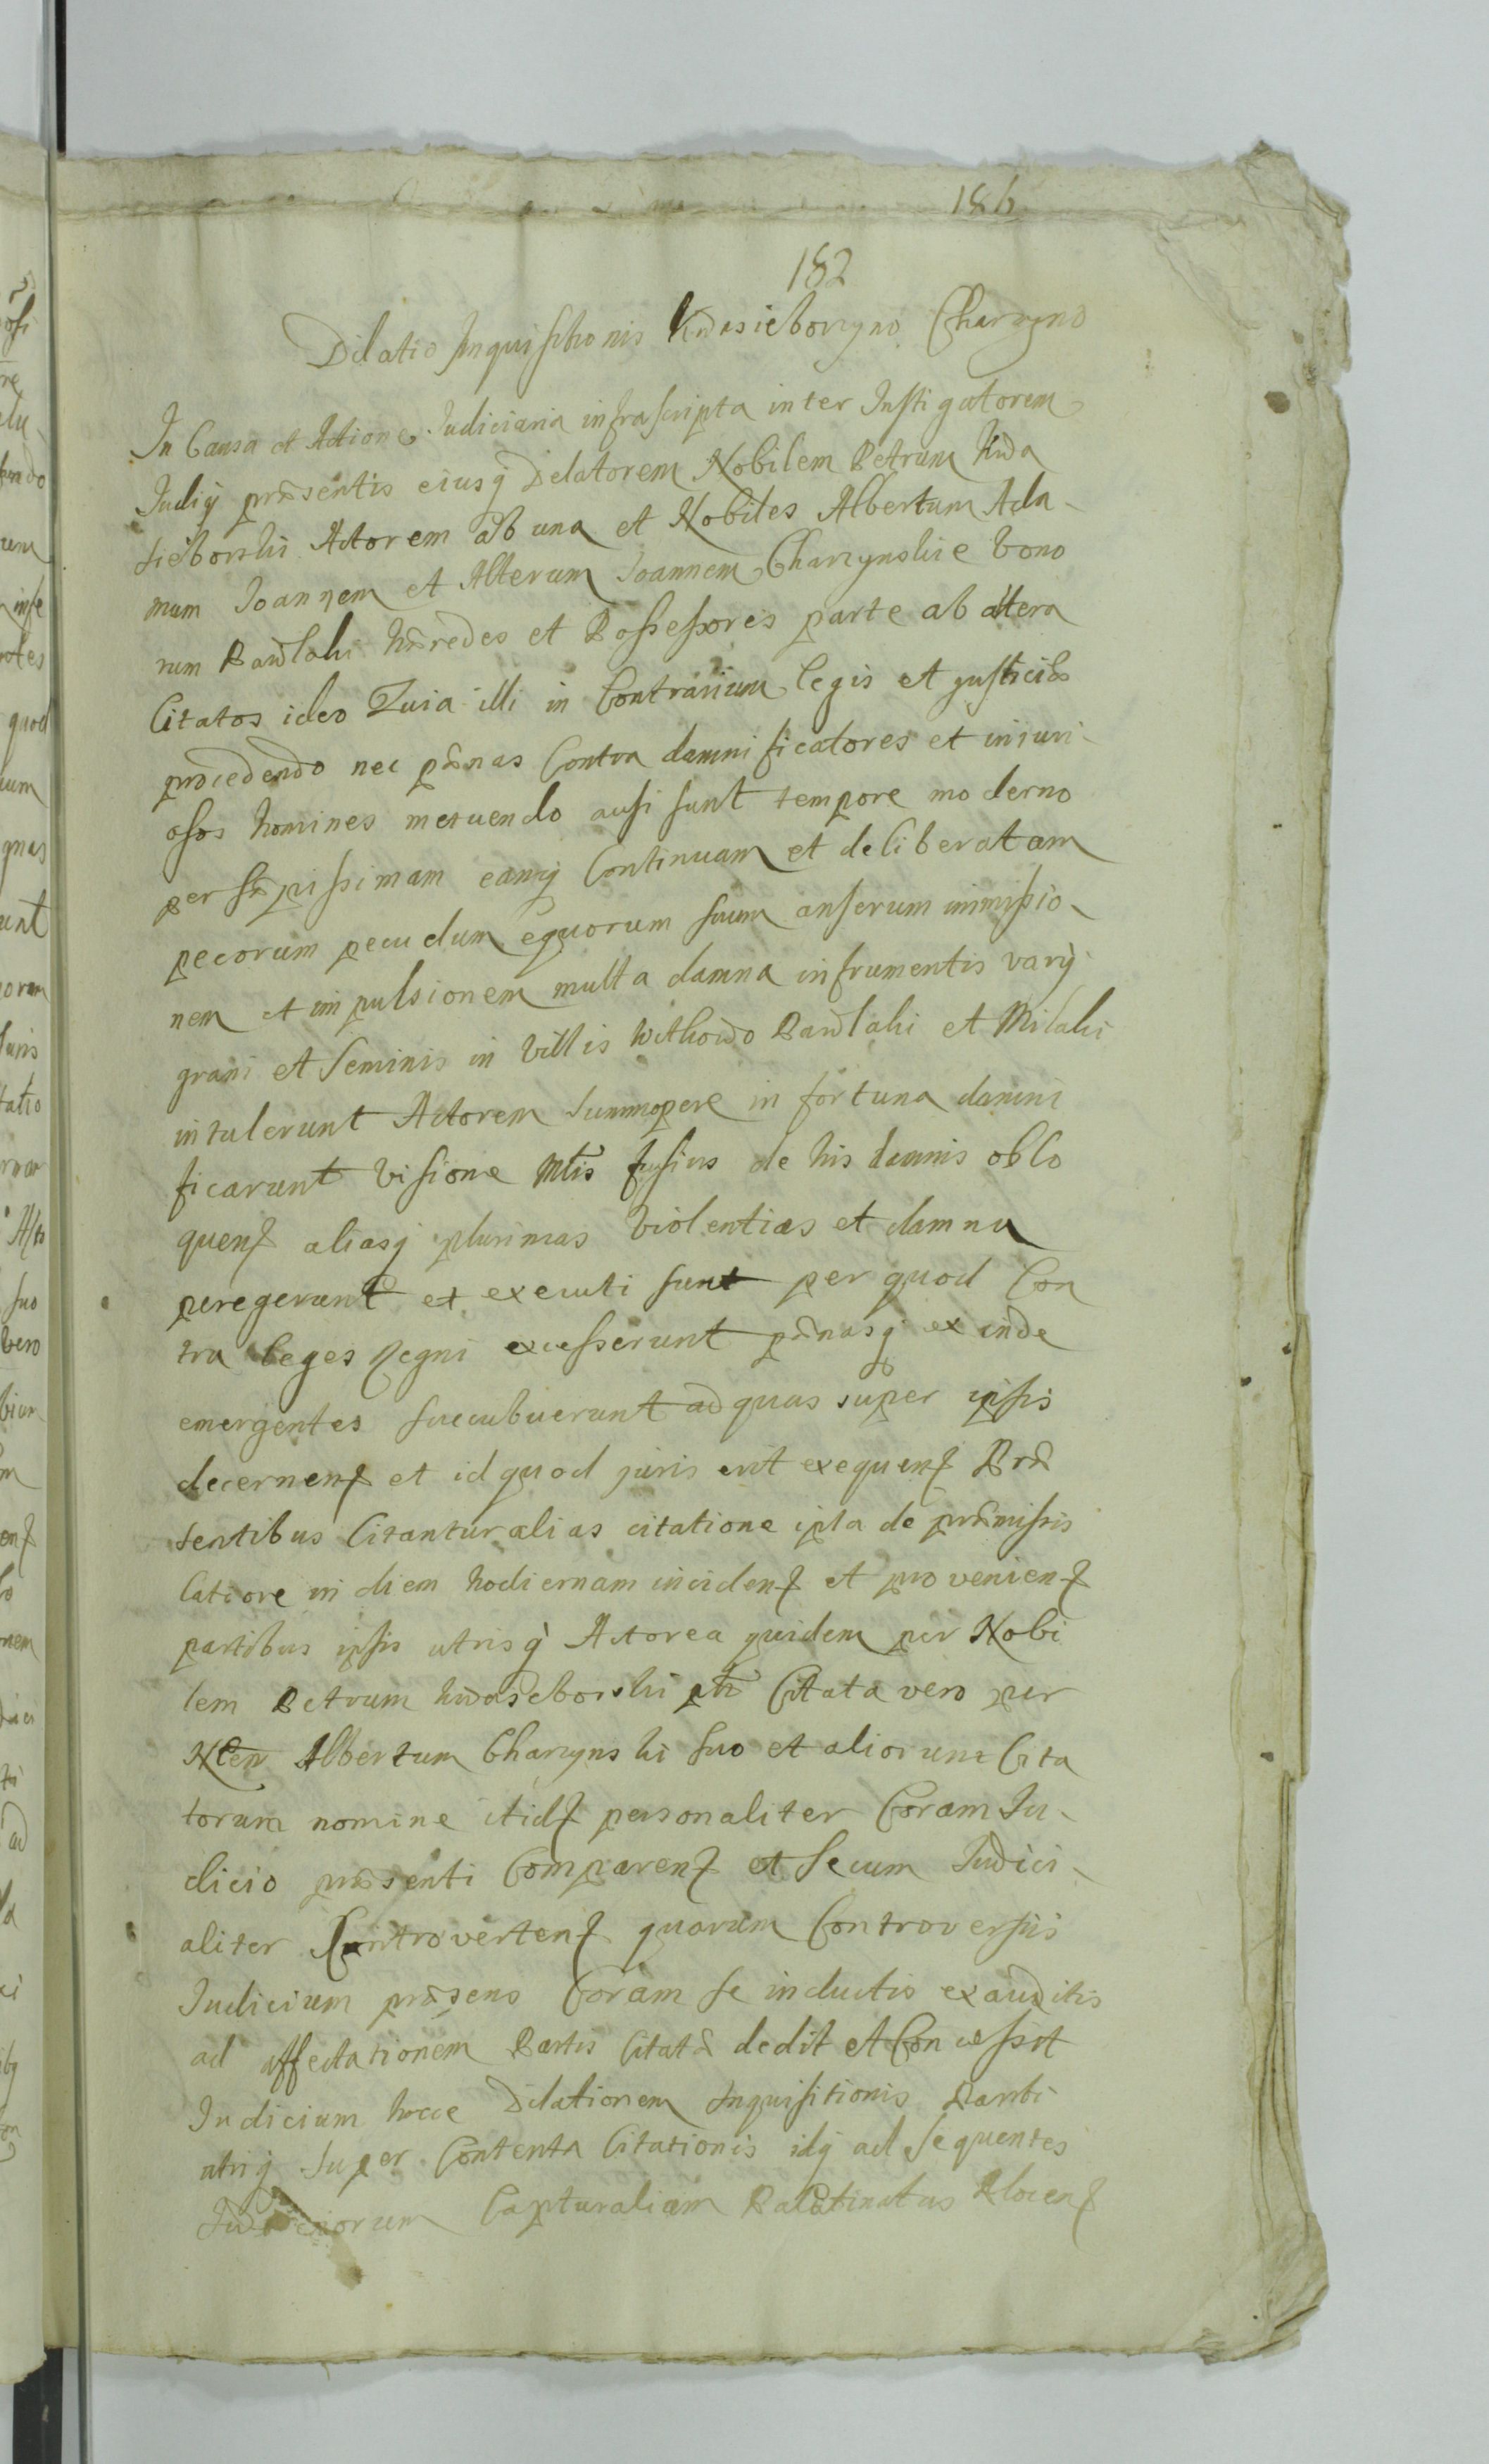 186
182
Dilatio Inquisitionis Kwasieborgno Charzyno
In Causa et Actione Judiciaria infrascripta inter Instigatorem
Judÿ præsentis eiusq Delatorem Nobilem Petrum Kwa
sieborski Actorem ab una et Nobiles Albertum Ada-
mum Joannem et Alterum Joannem Charzynskie bono
rum Pawlaki hæredes et Possessores parte ab altera
Citatos ideo Quia illi in Contrarium legis et justiciæ
procedendo nec pænas Contra damnificatores et iniuri-
osos homines metuendo ausi sunt tempore moderno
per sæpissimam eamq Continuam et deliberatam
pecorum pecudum equorum suum anserum immissio-
nem et impulsionem multa damna infrumentis varÿ
grani et Seminis in Villis Withowo Pawlaki et Milaki
intulerunt Actorem summopere in fortuna damni
ficarunt Visione Mtis fusius de his damnis oblo
quenƺ aliasq plurimas Violentias et damna
peregerunt et executi sunt per quod Con
tra leges Regni excesserunt pænasq ex inde
emergentes succubuerunt ad quas super ipsis
decernenƺ et id quod juris erit exequenƺ Præ
sentibus Citantur alias citatione ipsa de præmissis
latiore in diem hodiernam incidenƺ et provenienƺ
partibus ipsis utrisq Actorea quidem per Nobi
lem Petrum Kwaseborski ptn Citata vero per
Nlem Albertum Charzynski suo et aliorum Cita
torum nomine itidƺ personaliter Coram Ju-
dicio præsenti Comparenƺ et Secum Judici-
aliter Controvertenƺ quorum Controversiis
Judicium præsens Coram se inductis exauditis
ad affectationem Partis Citatæ dedit et Concessit
Judicium hocce Dilationem Inquisitionis Parti
utriq super Contenta Citationis idq ad sequentes
Judiciorum Capturalium Palatinatus Plocenƺ